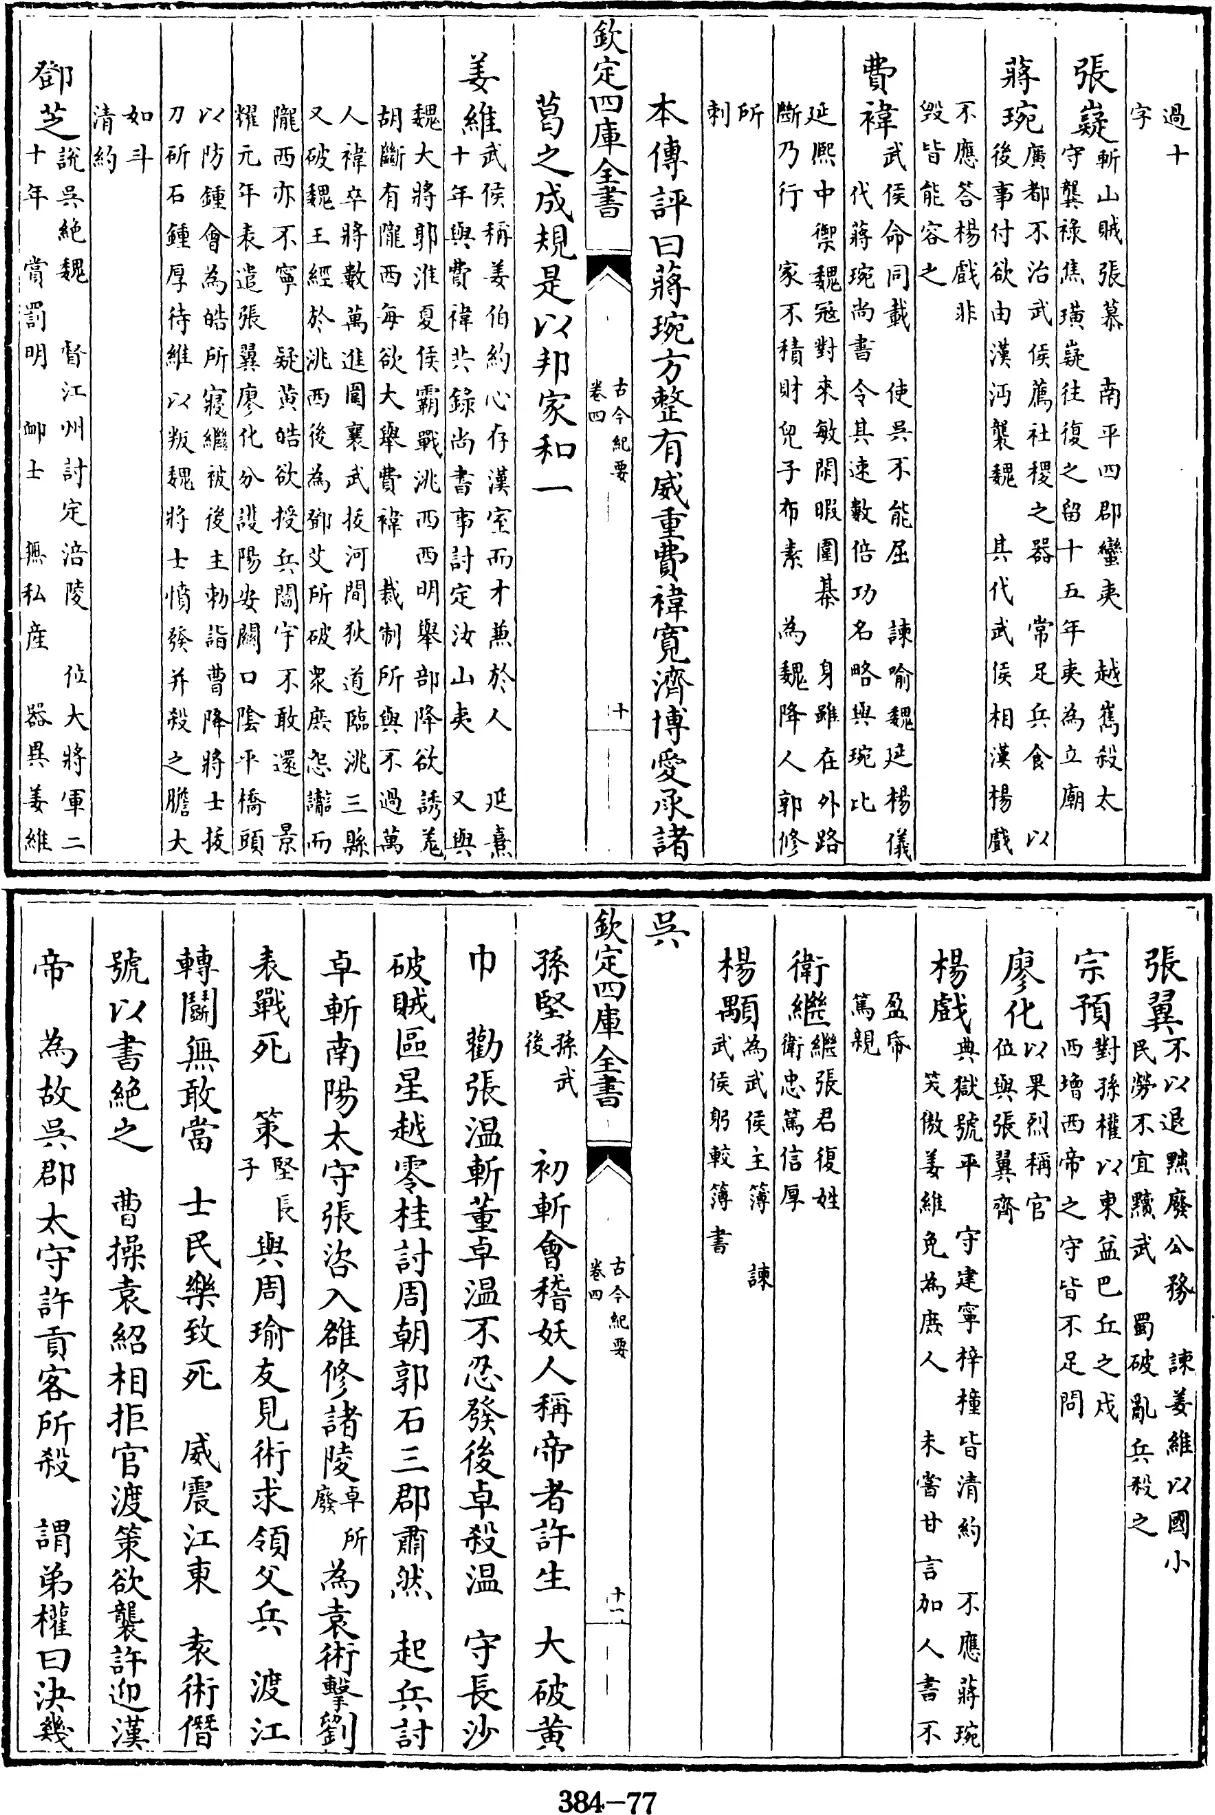 過十
字
張嶷斬山賊張慕 南平四郡蠻夷 越嶲殺太
守龔祿焦璜嶷往復之留十五年夷為立廟
蔣琬廣都不治武侯薦社稷之器 常足兵食 以
後事付欲由漢沔襲魏 其代武侯相漢楊戲
不應答楊戲非
毀皆能容之
費禕武侯命同載 使吳不能屈 諫喻魏延楊儀
代蔣琬尚書令其速數倍功名略與琬比
延熈中禦魏冦對來敏閑暇圍棊 身雖在外路
斷乃行 家不積財兒子布素 為魏降人郭修
所
刺
本傳評曰蔣琬方整有威重費禕寬濟博愛承諸
欽定四庫全書
古今紀要
卷四
十
葛之成規是以邦家和一
姜維武侯稱姜伯約心存漢室而才兼於人 延熹
十年與費禕共錄尚書事討定汶山夷 又與
魏大將郭淮夏侯霸戰洮西西明舉部降欲誘羌
胡斷有隴西每欲大舉費禕 裁制所與不過萬
人禕卒將數萬進圍襄武拔河間狄道臨洮三縣
又破魏王經於洮西後為鄧艾所破衆庶怨讟而
隴西亦不寧 疑黃皓欲授兵閻宇不敢還 景
耀元年表遣張翼廖化分設陽安關口陰平橋頭
以防鍾會為皓所寢繼被後主勑詣曹降將士拔
刀斫石鍾厚待維以叛魏將士憤發并殺之膽大
如斗
清約
鄧芝說吳絶魏 督江州討定涪陵 位大將軍二
十年 賞罰明 卹士 無私産 器異姜維
張翼不以退黜廢公務 諫姜維以國小
民勞不宜黷武 蜀破亂兵殺之
宗預對孫權以東益巴丘之戍
西增西帝之守皆不足問
廖化以果烈稱官
位與張翼齊
楊戲典獄號平 守建寧梓橦皆清約 不應蔣琬
笑傲姜維免為庶人 未嘗甘言加人書不
盈帋
篤親
衛繼繼張君復姓
衛忠篤信厚
楊顒為武侯主簿 諫
武侯躬較簿書
吳
欽定四庫全書
古今紀要
卷四
十一
孫堅孫武
後
初斬會稽妖人稱帝者許生 大破黃
巾 勸張温斬董卓温不忍發後卓殺温 守長沙
破賊區星越零桂討周朝郭石三郡肅然 起兵討
卓斬南陽太守張咨入雒修諸陵卓所
廢
為袁術擊劉
表戰死 策堅長
子
與周瑜友見術求領父兵 渡江
轉鬭無敢當 士民樂致死 威震江東 袁術僭
號以書絶之 曹操袁紹相拒官渡策欲襲許迎漢
帝 為故吳郡太守許貢客所殺 謂弟權曰決幾
384-77